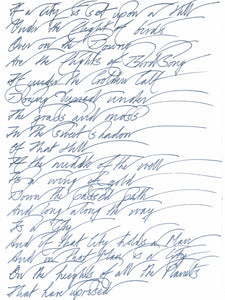 If a City is set upon a Hill
Under the flight of birds
Over on the Downs
Are the flights of Bird Song
If under the Golden Calf
Dying under
The goods and
In the sweet shadow
Of that Hill
If middle of the well
Is a wing of gold
Down the path
And long along the way
Is a City
And if that City holds a Man
And in that Man is a City
On the heights of all the Planets
That have uprised